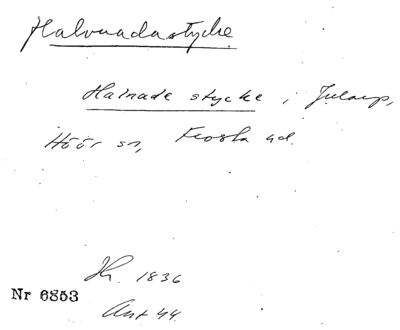 Halvnadastycke
Halnade stycke i Jularp,
Höör sn, Frosta hd.
Hr. 1836
Nr 6853
Ant 44.